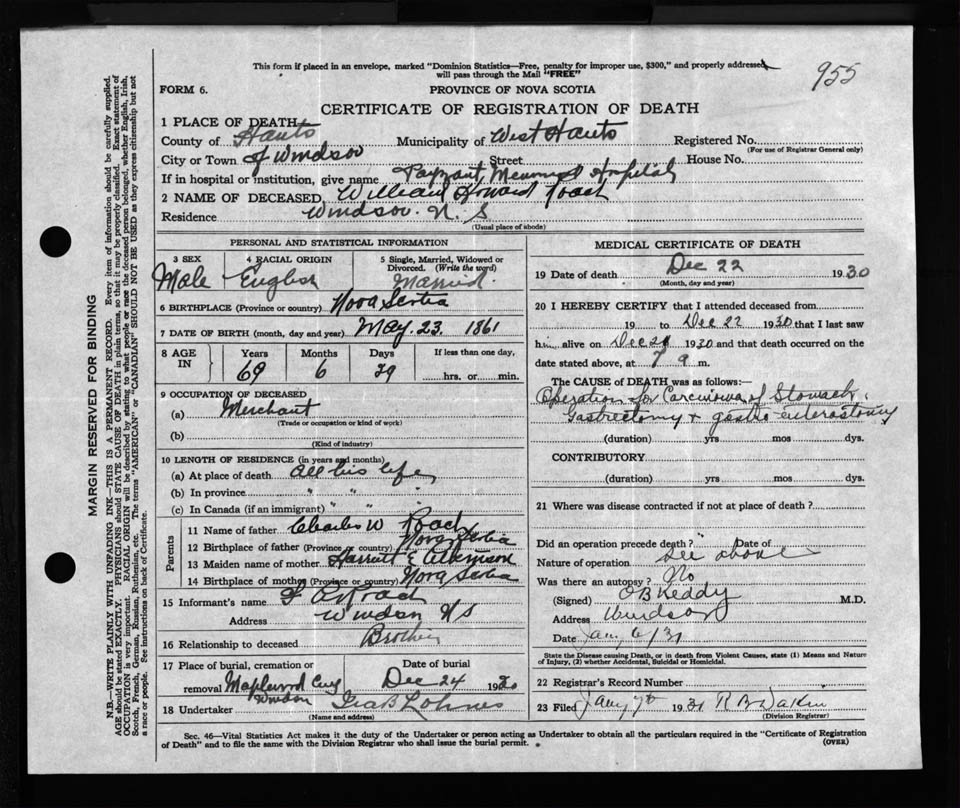 This form if placed in an envelope, marked "Dominion Statistics—Free, penalty for improper use, $300," and properly addressed
will pass through the Mail "FREE"
955
FORM 6.
PROVINCE OF NOVA SCOTIA
CERTIFICATE OF REGISTRATION OF DEATH
1 PLACE OF DEATH
County of Hants Municipality of West Hants Registered No.
(For use of Registrar General only)
City or Town of Windsor Street House No.
If in hospital or institution, give name Payzant Memorial Hospital
2 NAME OF DECEASED William Howard Roach
Residence Windsor. N. S
(Usual place of abode)
PERSONAL AND STATISTICAL INFORMATION
3 SEX 4 RACIAL ORIGIN 5 Single, Married, Widowed or
Divorced. (Write the word)
Male English Married.
6 BIRTHPLACE (Province or country) Nova Scotia
7 DATE OF BIRTH (month, day and year) May. 23. 1861
8 AGE IN Years Months Days If less than one day,
69 6 29 hrs. or min.
9 OCCUPATION OF DECEASED
(a) Merchant
(Trade or occupation or kind of work)
(b)
(Kind of industry)
10 LENGTH OF RESIDENCE (in years and months)
(a) At place of death All his life
(b) In province " " "
(c) In Canada (if an immigrant) " " "
Parents
11 Name of father Charles W Roach
12 Birthplace of father (Province or country) Nova Scotia
13 Maiden name of mother Harriet E
14 Birthplace of mother (Province or country) Nova Scotia
15 Informant's name Roach
Address Windsor NS
16 Relationship to deceased Brother
17 Place of burial, cremation or Date of burial
removal Maplewood Cem Dec 24 1930
Windsor
18 Undertaker Ira B Lohnes
(Name and address)
MEDICAL CERTIFICATE OF DEATH
19 Date of death Dec 22 1930
(Month, day and year)
20 I HEREBY CERTIFY that I attended deceased from
19 to Dec 22 1930 that I last saw
him alive on Dec 21 1930 and that death occurred on the
date stated above, at 7 a m.
The CAUSE OF DEATH was as follows:—
Operation for Carcinoma of Stomach.
Gastrectomy & gastro-enterostomy
(duration) yrs mos dys.
CONTRIBUTORY
(duration) yrs mos dys.
21 Where was disease contracted if not at place of death?
Did an operation precede death? " Date of
Nature of operation See above
Was there an autopsy? No
(Signed) O B Keddy M.D.
Address Windsor
Date Jany 6/31
State the Disease causing Death, or in death from Violent Causes, state (1) Means and Nature
of Injury, (2) whether Accidental, Suicidal or Homicidal.
22 Registrar's Record Number
23 Filed Jany 7th 1931 R B Dakin
(Division Registrar)
Sec. 46—Vital Statistics Act makes it the duty of the Undertaker or person acting as Undertaker to obtain all the particulars required in the "Certificate of Registration
of Death" and to file the same with the Division Registrar who shall issue the burial permit.
(OVER)
MARGIN RESERVED FOR BINDING
N.B.—WRITE PLAINLY WITH UNFADING INK—THIS IS A PERMANENT RECORD. Every item of information should be carefully supplied.
AGE should be stated EXACTLY. PHYSICIANS should STATE CAUSE OF DEATH in plain terms, so that it may be properly classified. Exact statement of
OCCUPATION is very important. RACIAL ORIGIN will be described by stating to what people or race the deceased person belonged, whether English, Irish,
Scotch, French, German, Russian, Ruthenian, etc. The terms "AMERICAN" or "CANADIAN" SHOULD NOT BE USED as they express citizenship but not
a race or people. See instructions on back of Certificate.